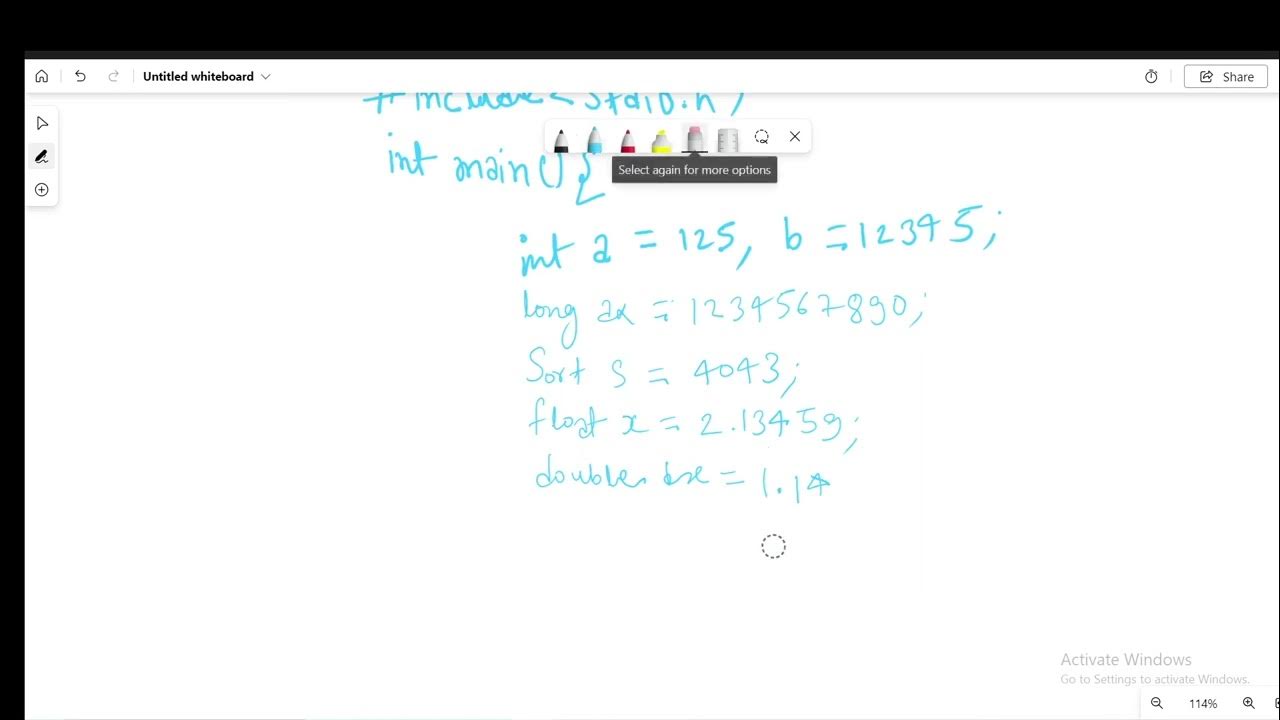 Untitled whiteboard
Share
#include <stdio.h>
Select again for more options
int main() {
int a = 125, b = 12345;
long ax = 1234567890;
Sort s = 4043;
float x = 2.13459;
double = 1.14
Activate Windows
Go to Settings to activate Windows.
114%